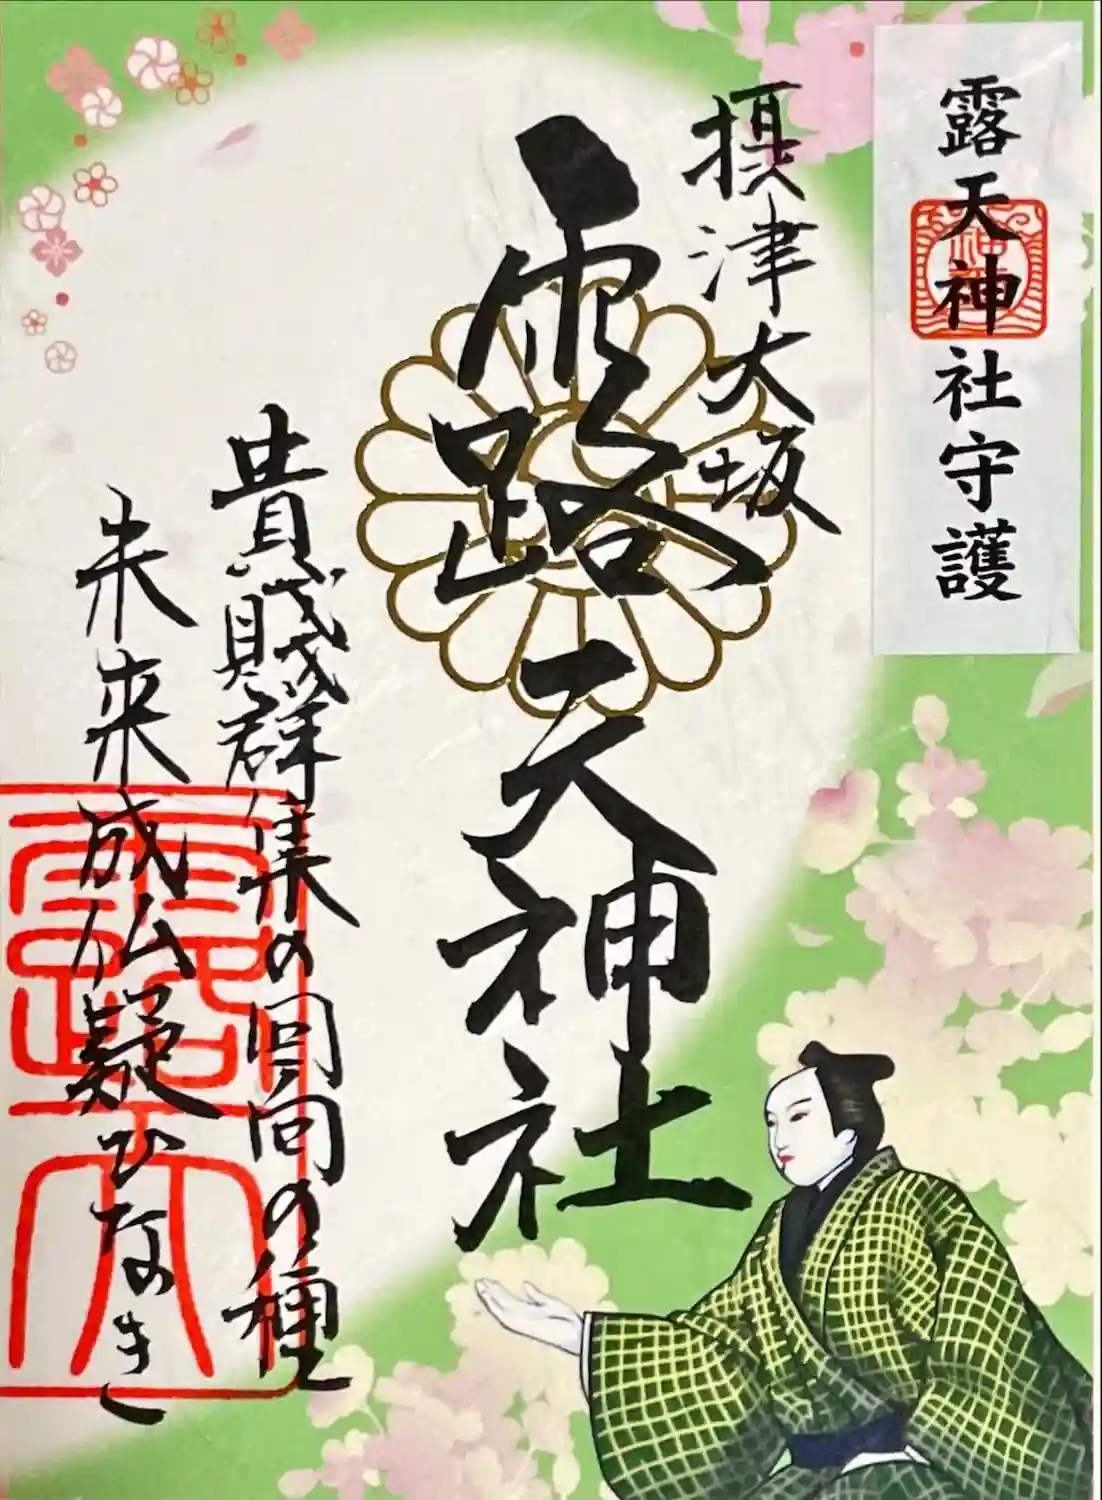 露天神社守護
摂津大坂
露天神社
貴賤群集の回向の種
未来成仏疑ひなき
露天